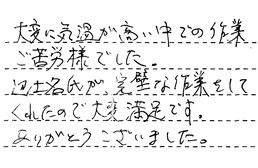 大変に気温が高い中での作業
ご苦労様でした。
氏が、完璧な作業をして
くれたので大変満足です。
ありがとうございました。